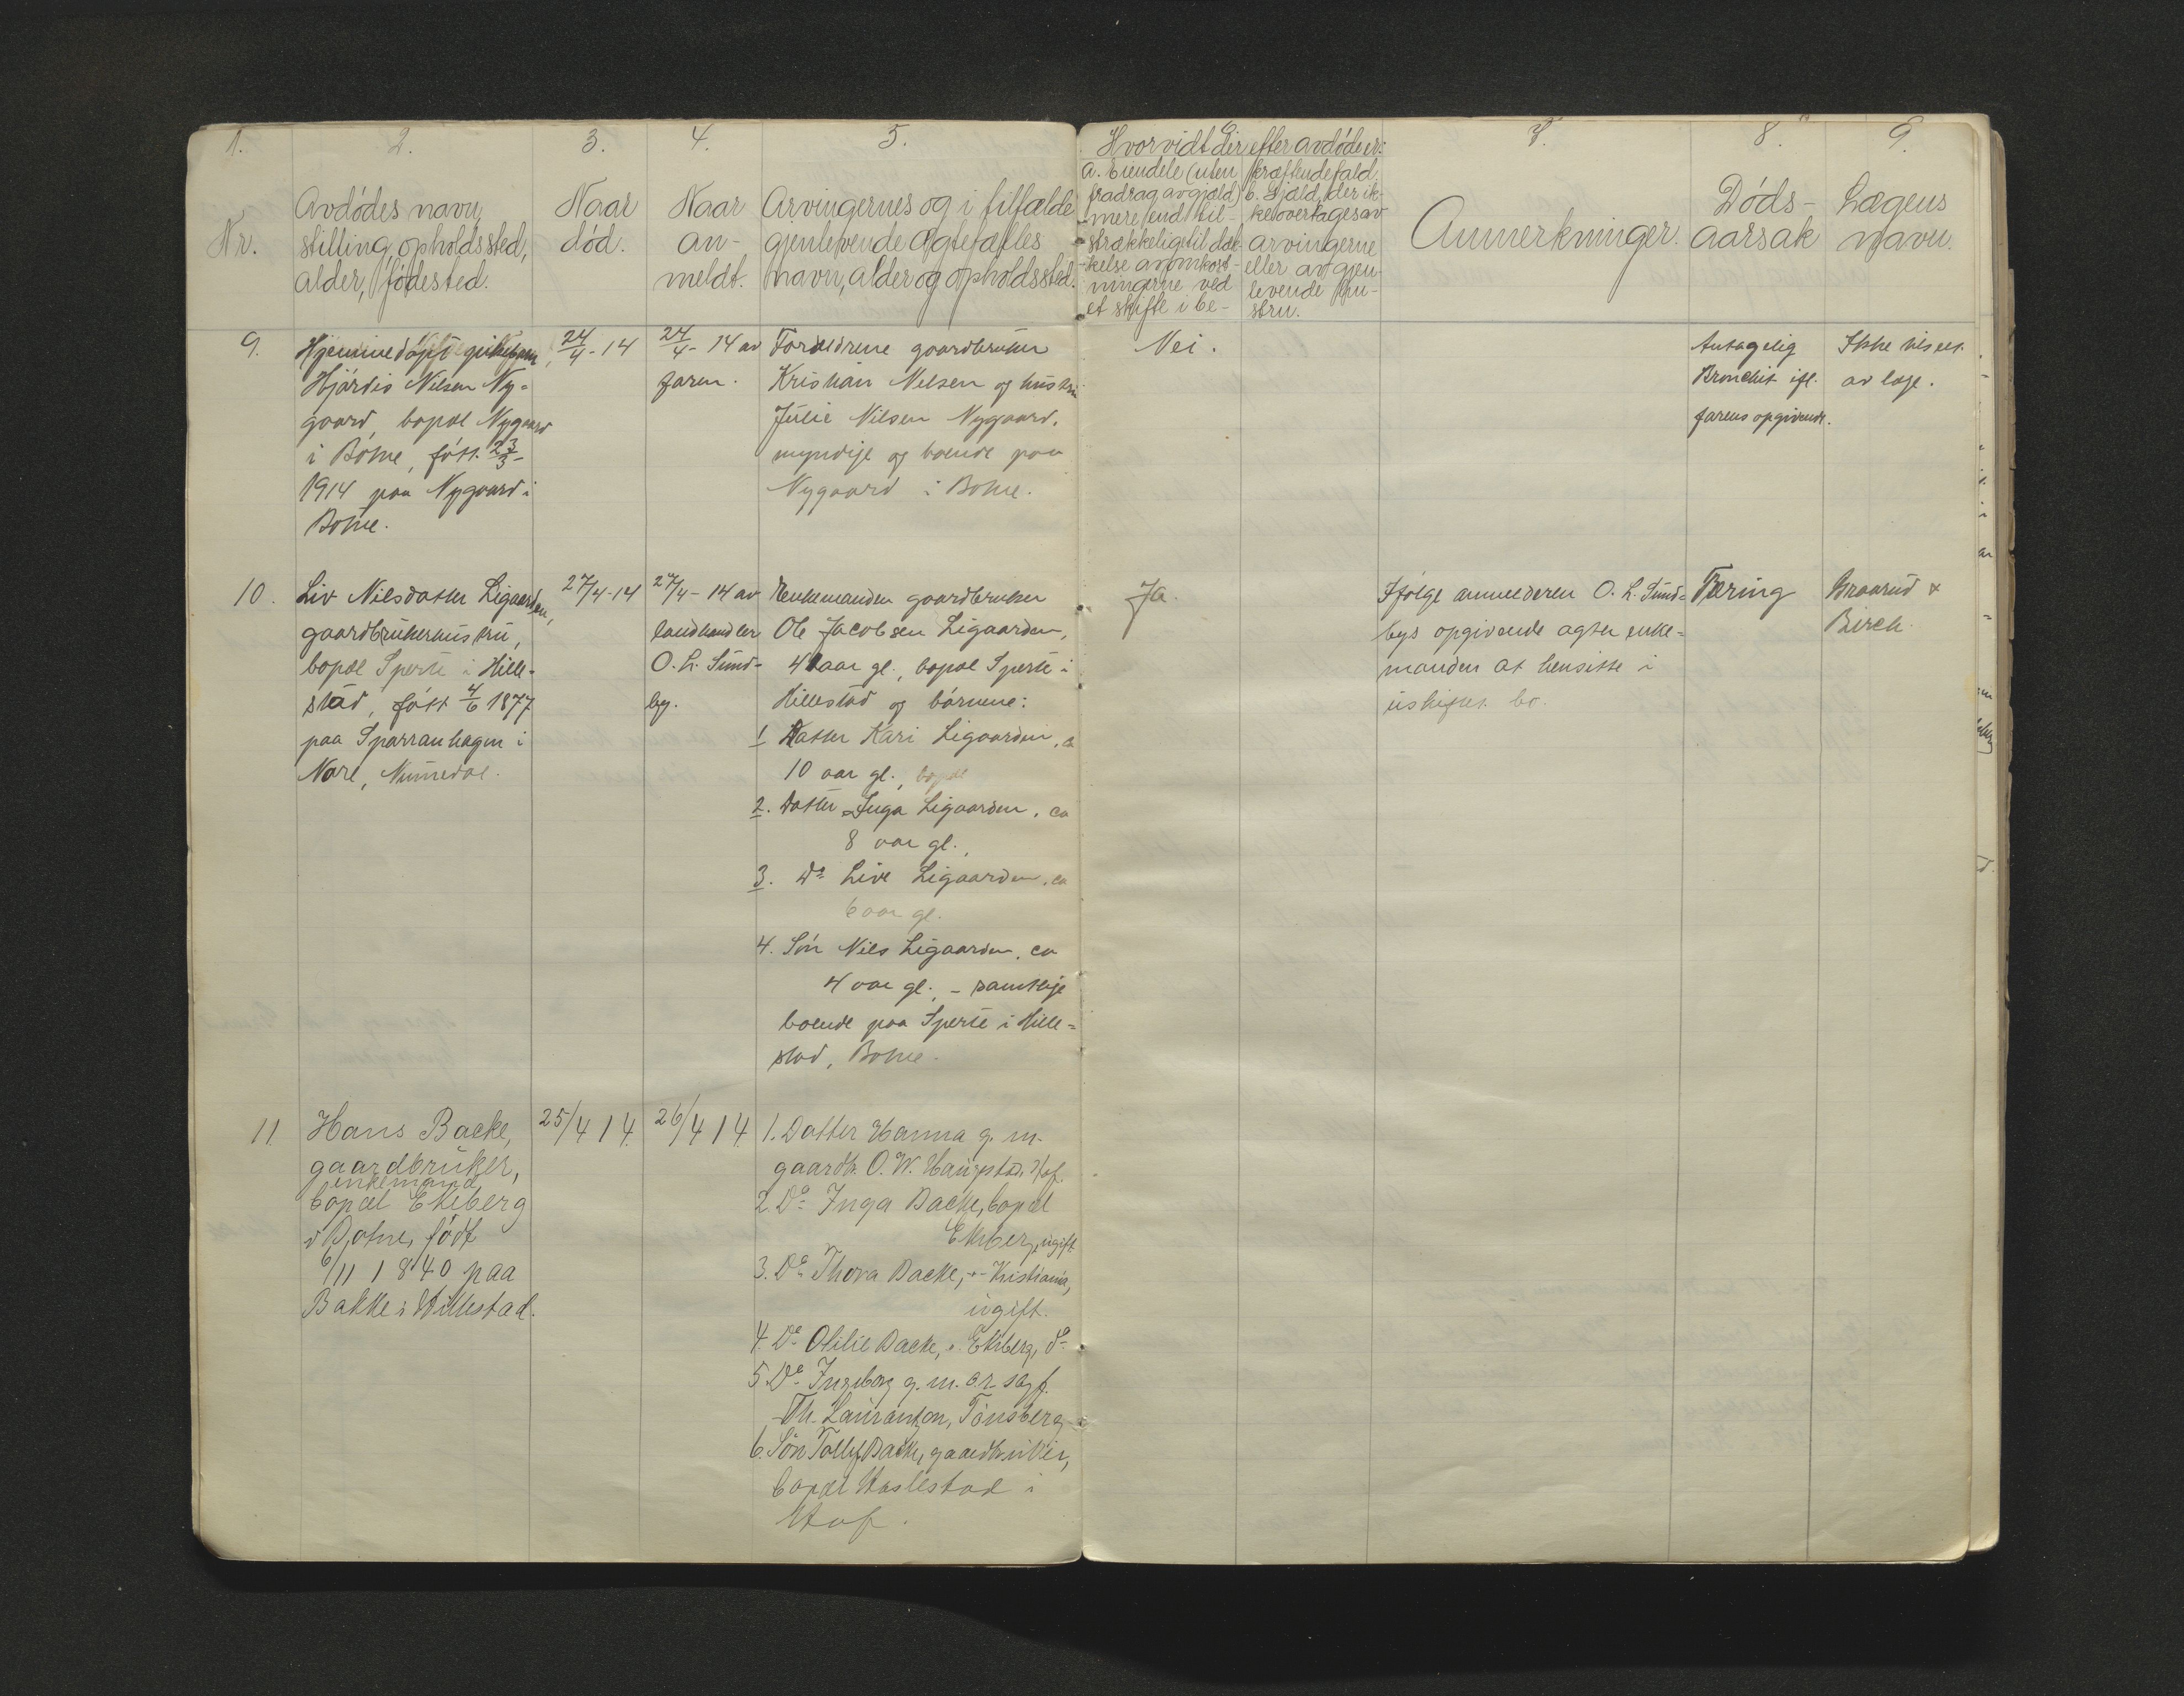 1.
2.
3.
4.
5.
6.
7.
8.
9.
Nr.
Avdödes navn,
stilling, opholdssted,
alder, födested.
Naar
död.
Naar
an-
meldt.
Arvingernes og i tilfælde
gjenlevende ægtefælles
navn, alder og opholdssted.
Hvorvidt der efter avdöde er:
a. Eiendele (uten
fradrag av gjæld)
mere end til-
strækkelig til dæk-
kelse av omkost-
ningerne ved
et skifte i be-
kræftende fald.
b. Gjæld, der ik-
ke overtages av
arvingerne
eller av gjen-
levende hu-
stru.
Anmerkninger.
Döds-
aarsak
Lægens
navn.
9.
Hjemmedöpt pikebarn
Hjördis Nilsen Ny-
gaard, bopæl Nygaard
i Botne, født 23/3-
1914 paa Nygaard i
Botne.
24/4-14
24/4-14 av
faren.
Forældrene gaardbruker
Kristian Nilsen og hustru
Julie Nilsen Nygaard,
myndige og boende paa
Nygaard i Botne.
Nei.
Antagelig
Bronchit ifl.
farens opgivende.
Ikke tilseet
av læge.
10.
Liv Nilsdatter Ligaarden,
gaardbrukerhustru,
bopæl Sperte i Hille-
stad, født 4/6 1877
paa Sparranhagen i
Nore, Numedal.
27/4-14
27/4-14 av
landhandler
O. L. Sund-
by.
Enkemanden gaardbruker
Ole Jacobsen Ligaarden,
41 aar gl., bopæl Sperte i
Hillestad og børnene:
1 Datter Kari Ligaarden, ca
10 aar gl., bopæl
2. Datter Inga Ligaarden, ca
8 aar gl.,
3. Do Live Ligaarden, ca
6 aar gl.
4. Søn Nils Ligaarden, ca
4 aar gl., - samtlige
boende paa Sperte i Hille-
stad, Botne.
Ja.
Ifølge anmelderen O. L. Sund-
bys opgivende agter enke-
manden at hensitte i
uskiftet bo.
Tæring
Braarud &
Birch.
11
Hans Backe,
gaardbruker,
enkemand
bopæl Ekeberg
i Botne, födt
6/11 1840 paa
Bakke i Hillestad.
25/4 14
26/4 14
1. Datter Hanna g. m.
gaardb. O. W. Haugstad, Hof.
2 Do Inga Backe, bopæl
Ekeberg, ugift
3. Do Thora Backe, -"- Kristiania,
ugift.
4. Do Otilie Backe, " Ekeberg, do
5. Do Ingeborg g. m. o.r. sagf.
Th. Laurantzon, Tönsberg
6. Sön Tollef Backe, gaardbruker,
bopæl Haslestad i
Hof.